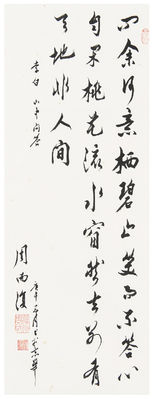 问余何意栖碧山笑而不答心
自闲桃花流水窅然去别有
天地非人间
李白 山中问答
周而复
庚午